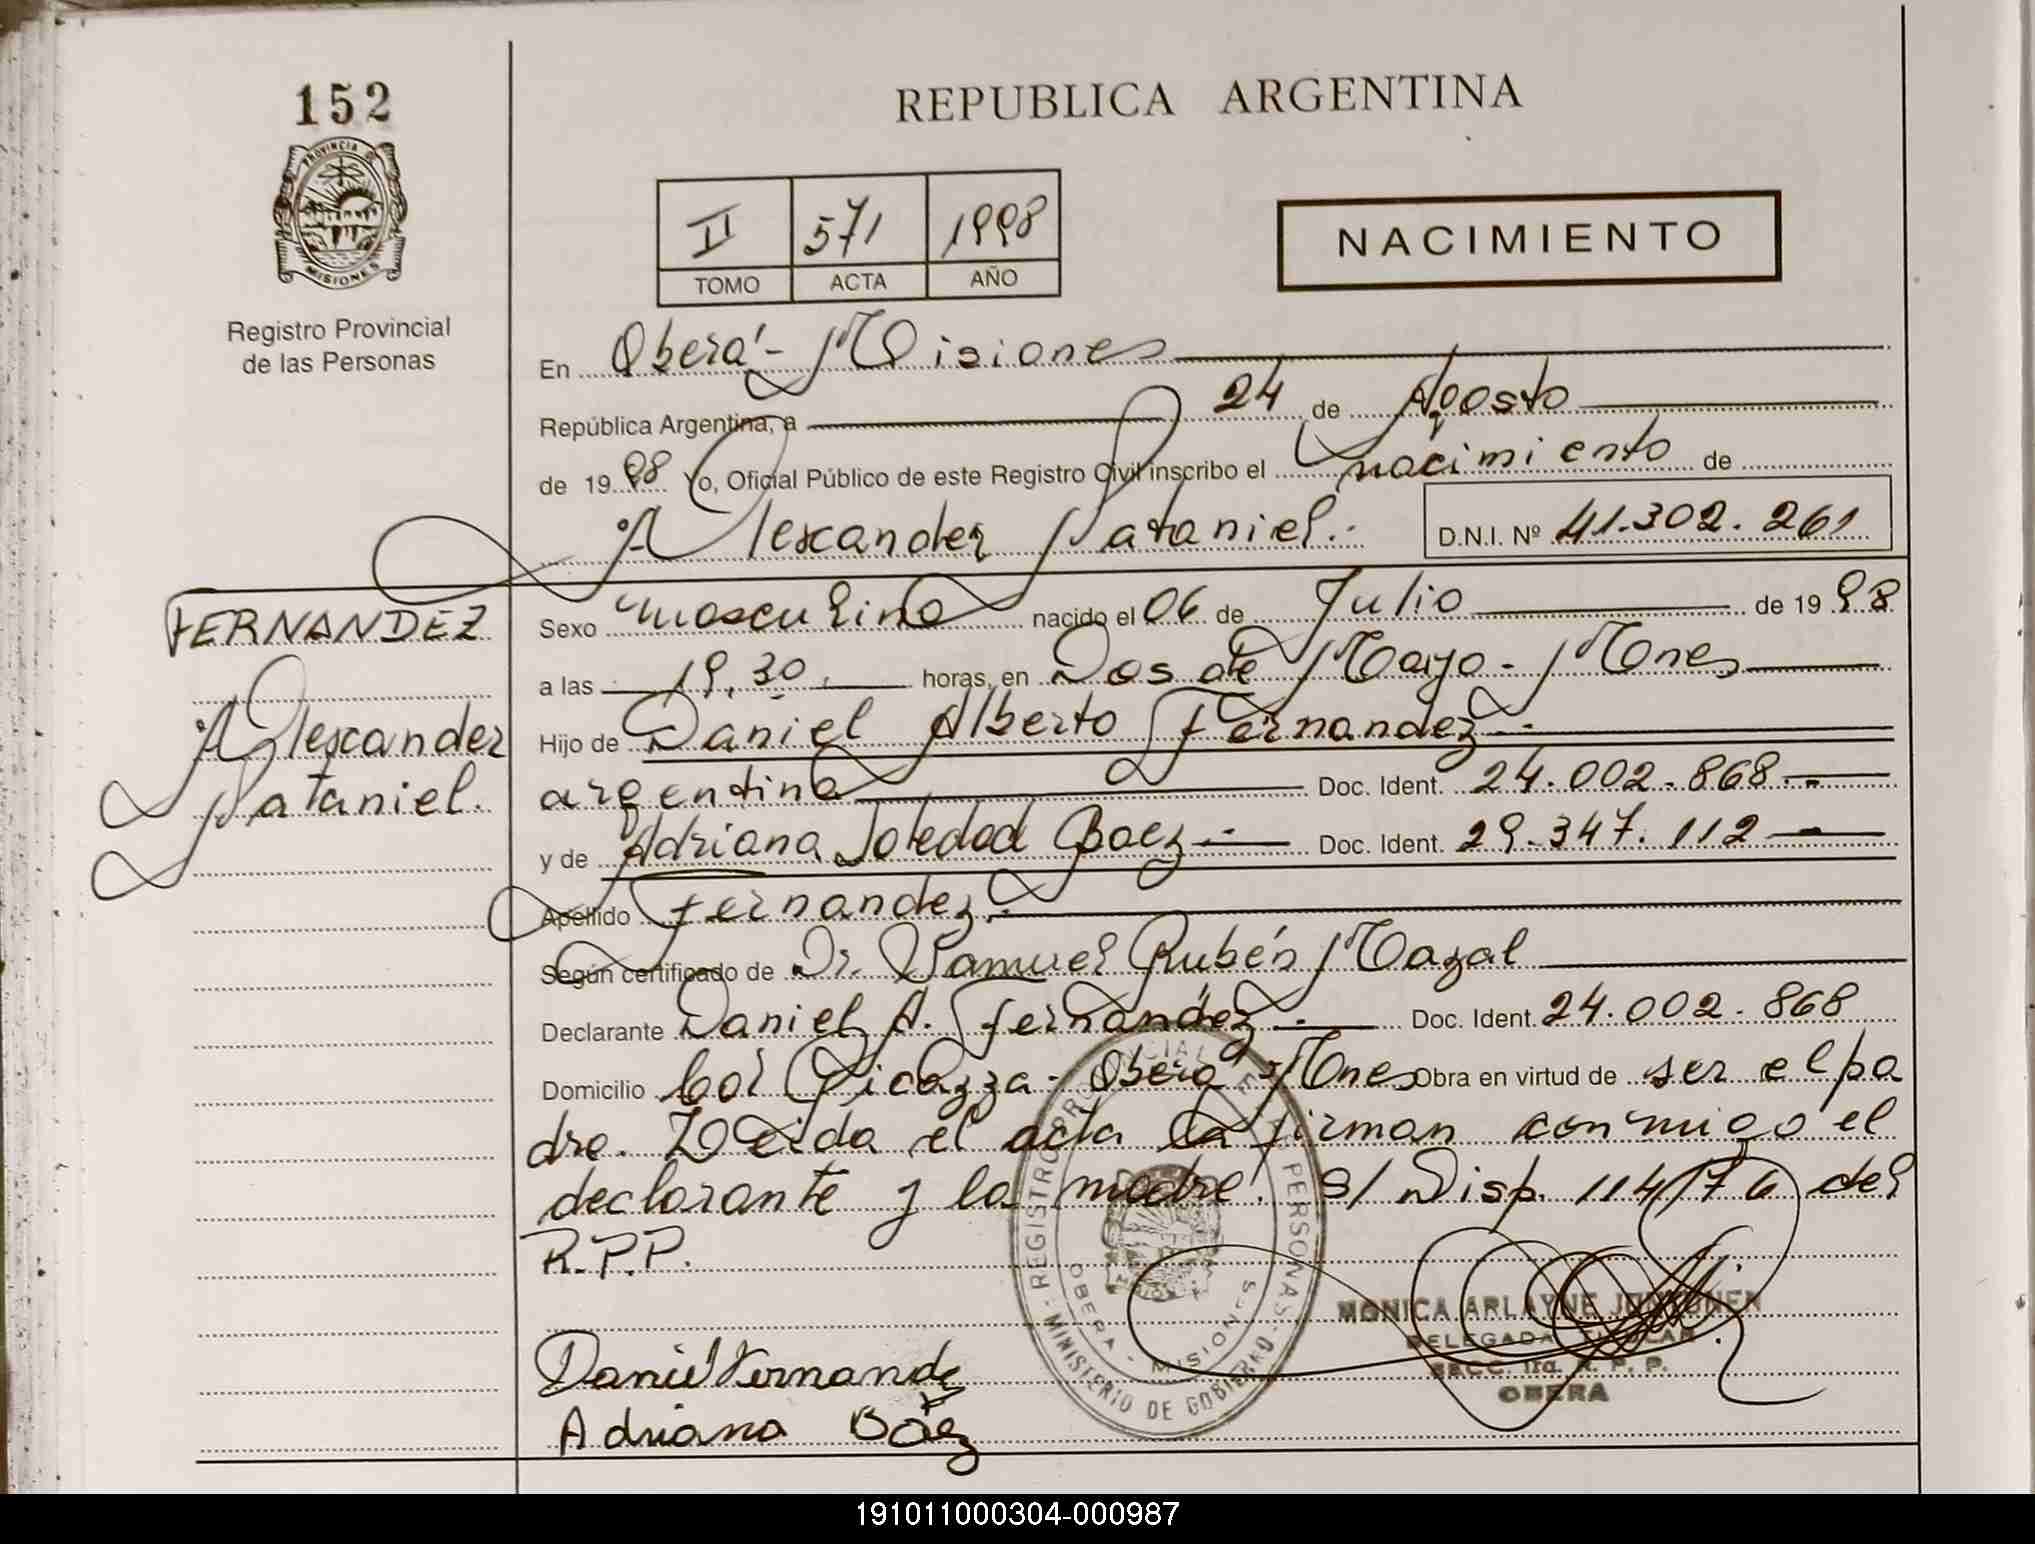 152
REPUBLICA ARGENTINA
PROVINCIA DE
MISIONES
Registro Provincial
de las Personas
II 571 1998
TOMO ACTA AÑO
NACIMIENTO
En Oberá - Misiones
República Argentina, a 24 de Agosto
de 1998 Yo, Oficial Público de este Registro Civil inscribo el nacimiento de
Alexander Nataniel.- D.N.I. Nº 41.302.261
FERNANDEZ
Alexander
Nataniel.
Sexo masculino nacido el 06 de Julio de 1998
a las 19,30 horas, en Dos de Mayo - Mnes
Hijo de Daniel Alberto Fernandez.-
argentino Doc. Ident. 24.002.868.-
y de Adriana Soledad Baez.- Doc. Ident. 29.347.112
Apellido Fernandez.-
Según certificado de Dr. Samuel Rubén Mazal
Declarante Daniel A. Fernández.- Doc. Ident. 24.002.868
Domicilio Col Picazza - Oberá Mnes Obra en virtud de ser el pa
dre. Leida el acta la firman conmigo el
declarante y la madre. S/ Disp. 114/76 del
R.P.P.
REGISTRO PROVINCIAL DE LAS PERSONAS
MINISTERIO DE GOBIERNO
OBERA - MISIONES
MONICA ARLAYNE
DELEGADA TITULAR
SECC. 1ra. R. P. P.
OBERA
Daniel Fernandez
Adriana Báez
191011000304-000987